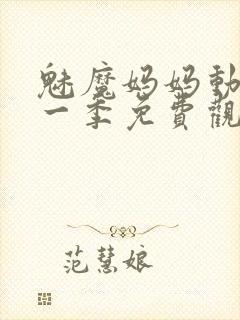 魅魔妈妈動
一季免費觀
范慧娘